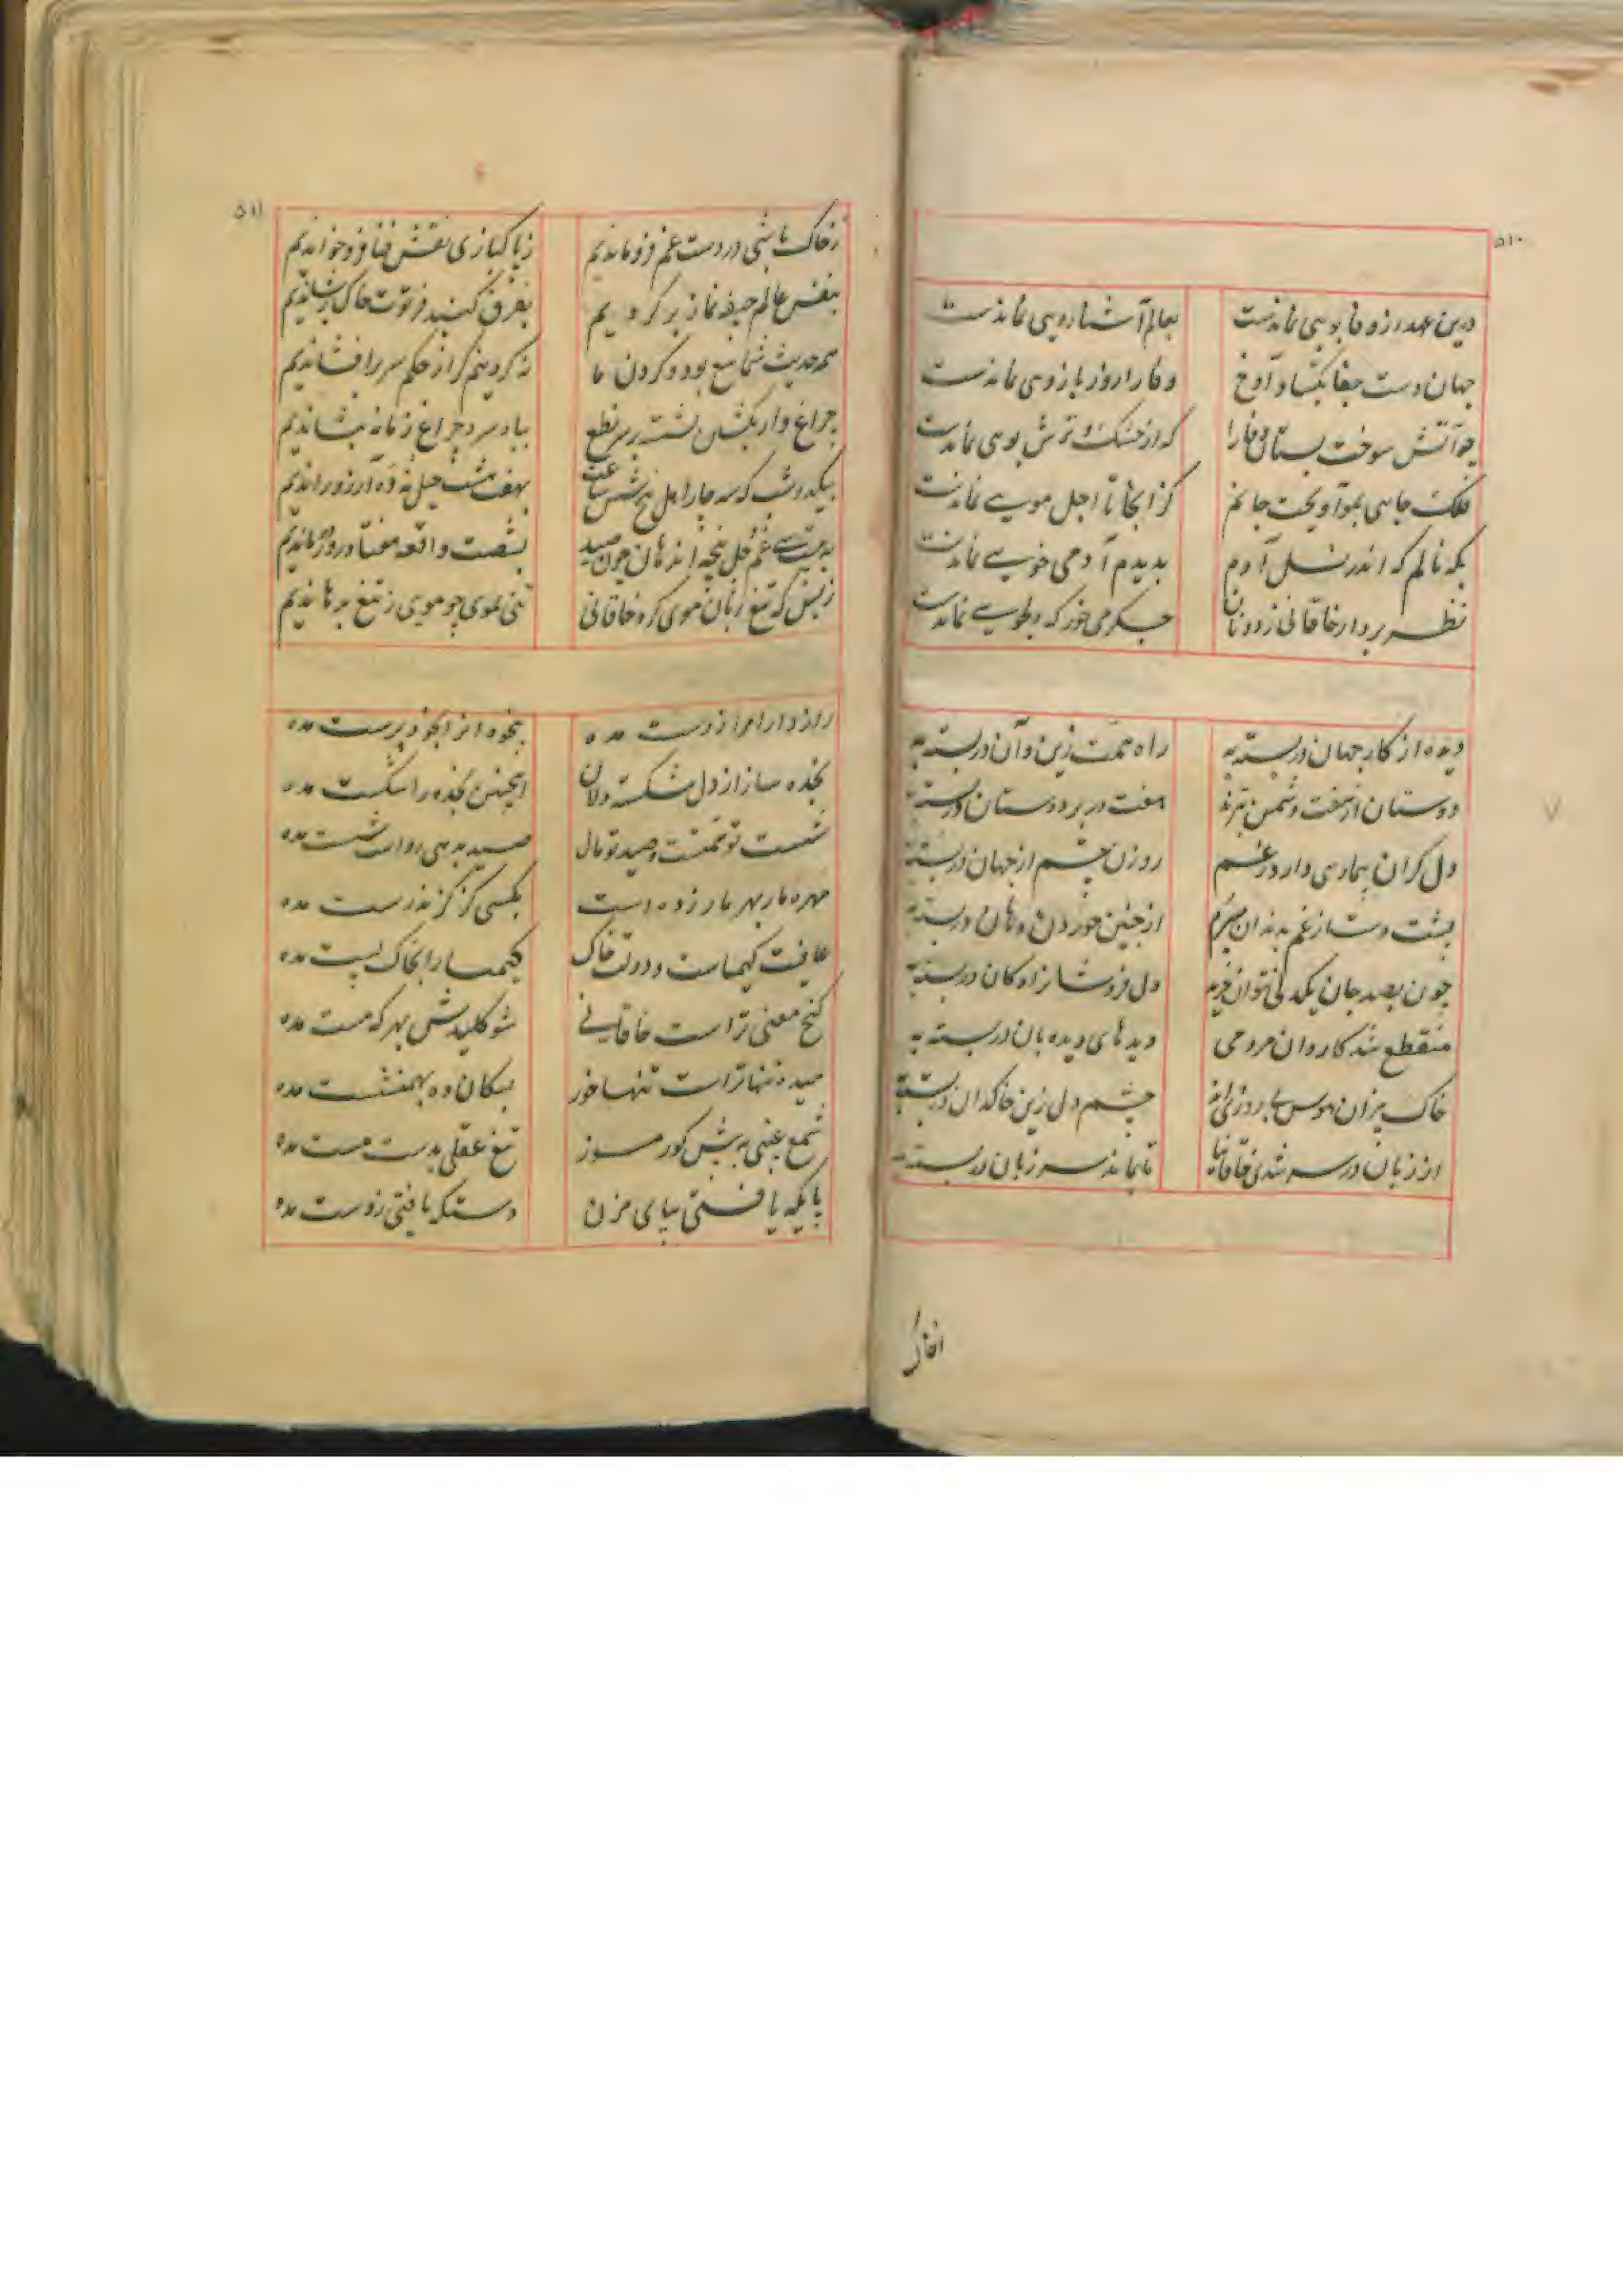 ۵۱۰
درین عهد از وفا بویی نماندست بعالم آشنارویی نماندست
جهان دست جفا بگشاد آوخ وفا را زور بازویی نماندست
چو آتش سوخت بستان وفا را که از خشک و ترش بویی نماندست
فلک جایی بموآویخت جانم کز آنجا تا اجل مویی نماندست
بکه نالم که اندر نسل آدم بدیدم آدمی خویی نماندست
نظر بردار خاقانی ز دونان جگر می‌خور که دلجویی نماندست
دیده از کار جهان دربسته به راه همت زین و آن دربسته به
دوستان از هفت دشمن بترند هفت در بر دوستان دربسته به
دل گران بیماری دارد ز غم روزن چشم از جهان دربسته به
پشت دست از غم بدندان میخورم از چنین خوردن دهان دربسته به
چون بصد جان یکدلی نتوان خرید دل فروشان را دکان دربسته به
منقطع شد کاروان مردمی دیدهای دیده بان دربسته به
خاک بیزان هوس بی روزی‌اند چشم دل زین خاکدان دربسته به
از زبان در سر شدی خاقانیا تا بماند سر زبان دربسته به
۵۱۱
ز خاک پاشی در دست غم فرو ماندیم ز پاکبازی نقش فنا فرو خواندیم
بنفس عالم جیفه نماز بر کردیم بفرق گنبد فرتوت خاک برشاندیم
همه حدیث شما تیغ بود و گردن ما نه گردنیم کز حکم سر برافشاندیم
چراغ وار بکشتن نشسته بر سر نطع بباد سرد چراغ زمانه بنشاندیم
بیکدو شب که سه جا را اهل پنج شش ساعت بهفت هشت حیل نه ده آرزو راندیم
به بیست سی غم چل پنجه اندهان چون صید بشصت واقعه هفتاد روز درماندیم
ز بس که تیغ زبان موی کرد خاقانی تنی بموی چو مویی ز تیغ برهاندیم
راز دارا مرا ز دست مده بیخودم از بخود پرست مده
بخنده ساز از دل شکسته دلان اینچنین بخنده را شکست مده
شست تو همتست و صید تو مال صید بدهی رواست شست مده
مهره مار بهر مار زده است بکسی کز گزند رست مده
عافیت کیمیاست و دولت خاک کیمیا را بخاک پست مده
گنج معنی تراست خاقانی شو کلیدش بهر که هست مده
میده تنها تراست تنها خور بسگان ده بهمنشست مده
شمع غیبی به پیش کور مسوز تیغ عقلی بدست مست مده
پایگه یافتی بپای مزن دستگه یافتی ز دست مده